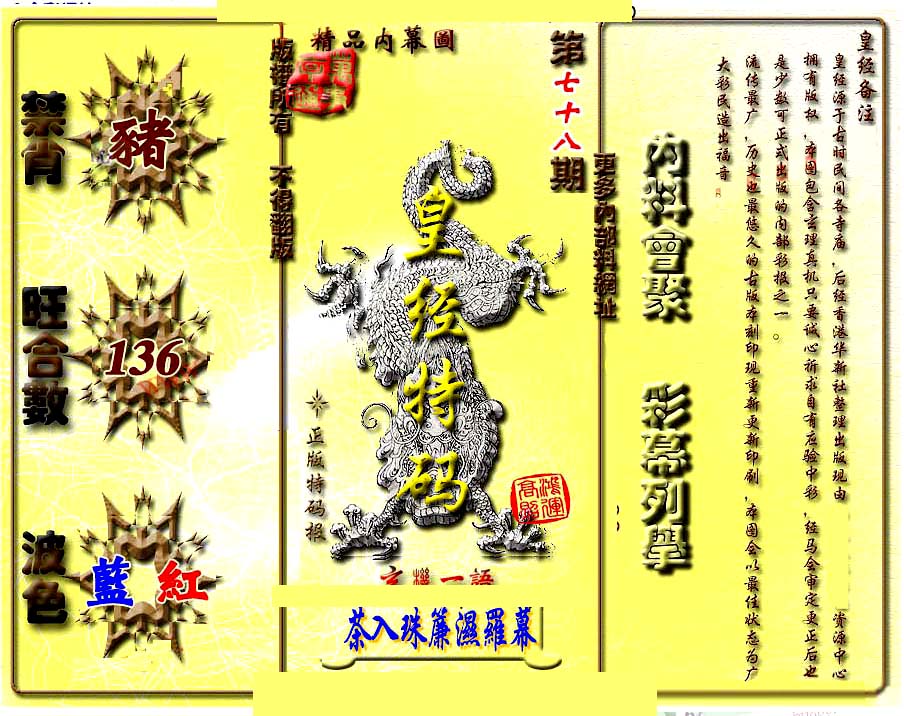 皇经备注
皇经源于古时民间各寺庙，后经香港华新社整理出版现由
资源中心
拥有版权，本图包含玄理真机只要诚心祈求自有应验中彩，经马会审定更正后也
是少数可正式出版的内部彩报之一。
流传最广，历史也最悠久的古版本刻印现重新更新印刷，本图会以最佳状态为广
大彩民造出福音
内料會聚
彩幕列舉
更多內部料網址
第七十八期
精品内幕圖
皇经特码
正版特码报
鴻運
高照
玄機一語
茶入珠簾濕羅幕
版權所有
不得翻版
禁肖
豬
旺合數
136
波色
藍 紅